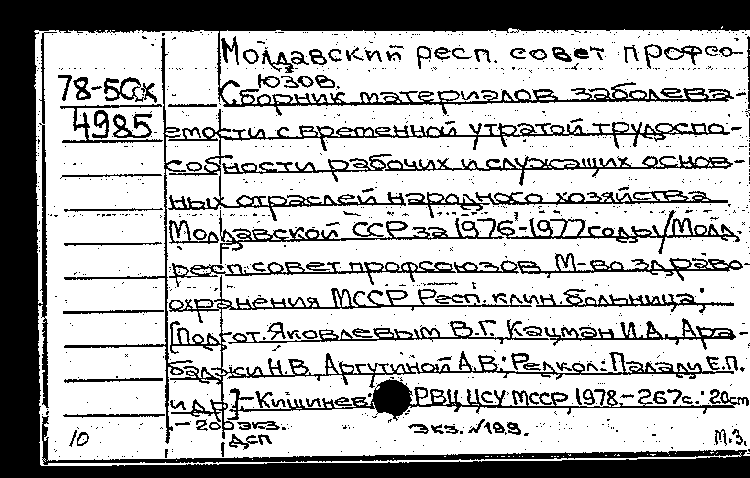 Молдавский респ. совет профсо-
юзов.
78-5Сск
Сборник материалов заболева-
4985
емости с временной утратой трудоспо-
собности рабочих и служащих основ-
ных отраслей народного хозяйства
Молдавской ССР за 1976-1977 годы/Молд.
респ. совет профсоюзов, М-во здраво-
охранения МССР, Респ. клин. больница;
[Подгот. Яковлевым В.Г., Кацман И.А., Ара-
баджи Н.В., Аргутиной А.В.; Редкол.: Палади Е.П.
и др.].-Кишинев: РВЦ ЦСУ МССР, 1978.-267с.; 20см
.-200экз.
ДСП
экз. №199.
10
М.З.